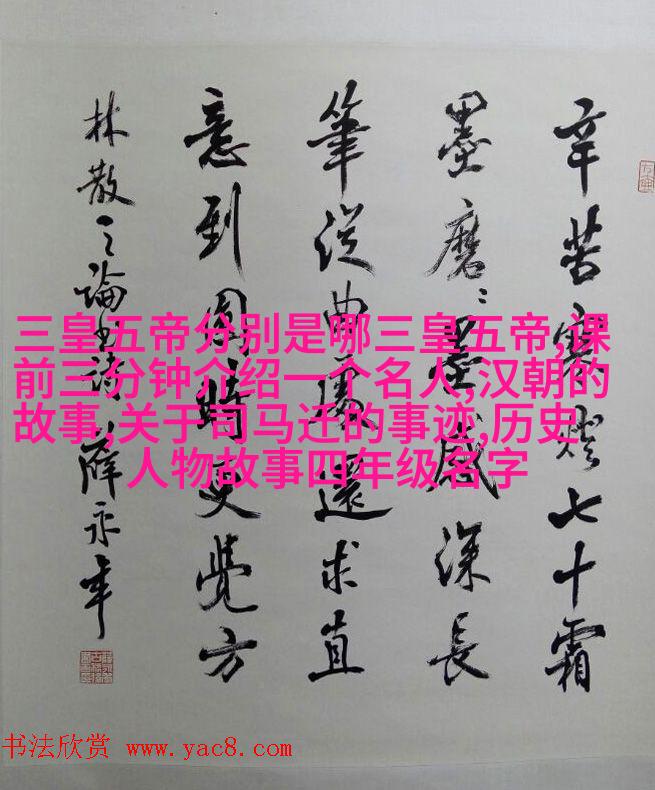 辛苦寒燈七十霜
墨磨〻墨感深長
筆從曲處還求直
意到圓時更覺方
林散之論書詩 薛永年
三皇五帝分别是哪三皇五帝,课
前三分钟介绍一个名人,汉朝的
故事,关于司马迁的事迹,历史
人物故事四年级名字
书法欣赏 www.yac8.com